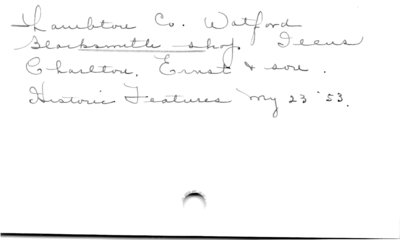 Lambton Co. Watford
Blacksmith shop Icens
Charlton, Ernst & son.
Historic Features My 23 '53.